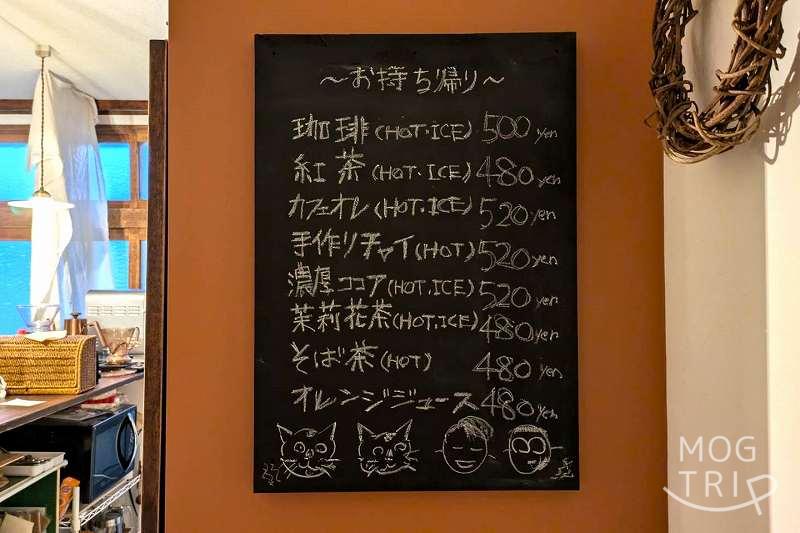 ～お持ち帰り～
珈琲(HOT・ICE) 500 yen
紅茶(HOT・ICE) 480 yen
カフェオレ(HOT・ICE) 520 yen
手作りチャイ(HOT) 520 yen
濃厚ココア(HOT・ICE) 520 yen
茉莉花茶(HOT・ICE) 480 yen
そば茶(HOT) 480 yen
オレンジジュース 480 yen
MOG
TRIP